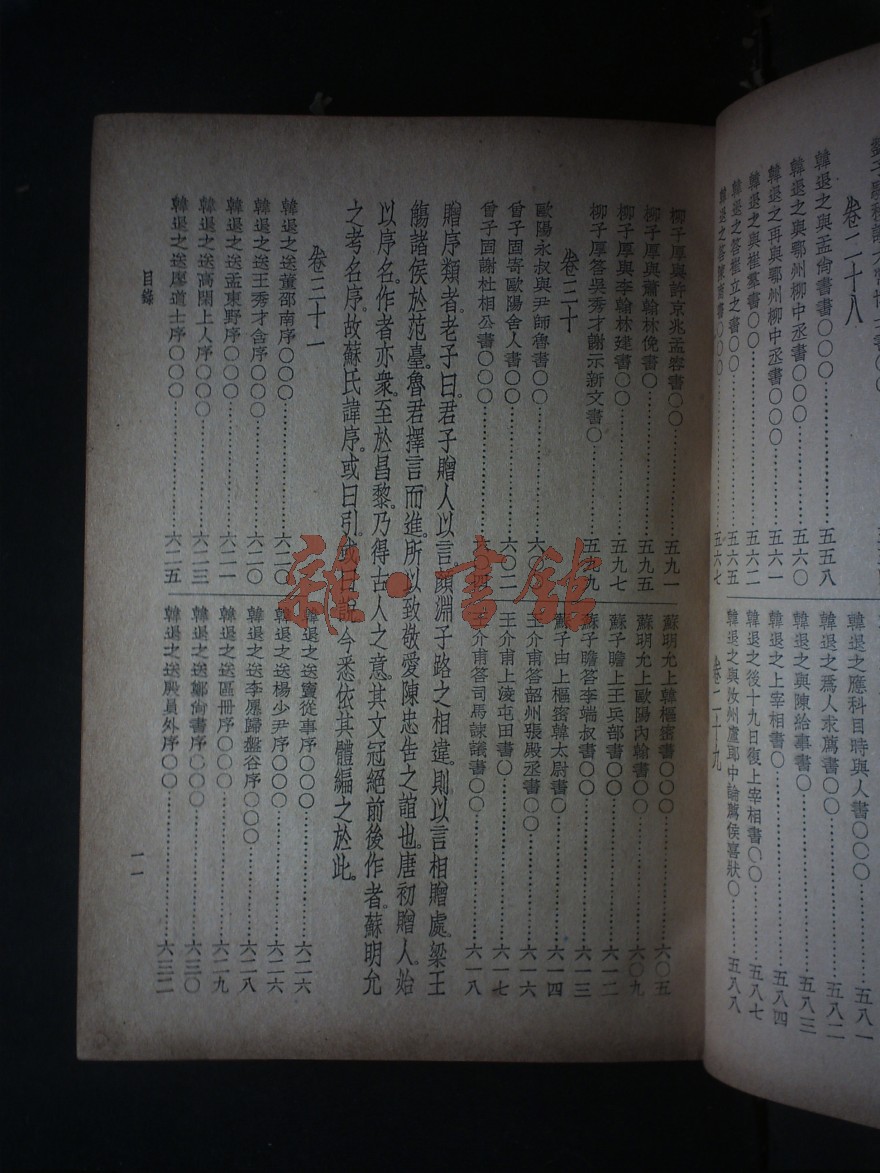 卷二十八
韓退之與孟尚書書〇〇〇……五五八
韓退之與鄂州柳中丞書〇〇〇……五六〇
韓退之再與鄂州柳中丞書〇〇〇……五六一
韓退之與崔羣書〇〇……五六二
韓退之答崔立之書〇〇……五六五
韓退之答陳商書〇〇……五六七
韓退之應科目時與人書〇〇〇……五八一
韓退之爲人求薦書〇〇……五八二
韓退之與陳給事書〇……五八三
韓退之上宰相書〇……五八四
韓退之後十九日復上宰相書〇〇……五八七
韓退之與汝州盧郎中論薦侯喜狀〇……五八八
卷二十九
柳子厚與許京兆孟容書〇〇……五九一
柳子厚與蕭翰林俛書〇……五九五
柳子厚與李翰林建書〇〇……五九七
柳子厚答吳秀才謝示新文書〇……五九九
卷三十
歐陽永叔與尹師魯書〇〇……六〇〇
曾子固寄歐陽舍人書〇〇……六〇二
曾子固謝杜相公書〇〇……六〇四
蘇明允上韓樞密書〇〇……六〇五
蘇明允上歐陽內翰書〇〇……六〇九
蘇子瞻上王兵部書〇〇……六一二
蘇子瞻答李端叔書〇〇……六一三
蘇子由上樞密韓太尉書〇……六一四
王介甫答韶州張殿丞書〇〇……六一六
王介甫上淩屯田書〇……六一七
王介甫答司馬諫議書〇〇……六一八
贈序類者。老子曰。君子贈人以言。顏淵子路之相違。則以言相贈處。梁王
觴諸侯於范臺。魯君擇言而進。所以致敬愛陳忠告之誼也。唐初贈人。始
以序名。作者亦衆。至於昌黎。乃得古人之意。其文冠絕前後作者。蘇明允
之考名序。故蘇氏諱序。或曰引。或曰說。今悉依其體。編之於此。
卷三十一
韓退之送董邵南序〇〇〇……六二〇
韓退之送王秀才含序〇〇〇……六二〇
韓退之送孟東野序〇〇〇……六二一
韓退之送高閑上人序〇〇〇……六二三
韓退之送廖道士序〇〇〇……六二五
韓退之送竇從事序〇〇〇……六二六
韓退之送楊少尹序〇〇〇……六二六
韓退之送李愿歸盤谷序〇〇〇……六二八
韓退之送區冊序〇〇〇……六二九
韓退之送鄭尚書序〇〇〇……六三〇
韓退之送殷員外序〇〇……六三二
目錄
一一
雜·書館